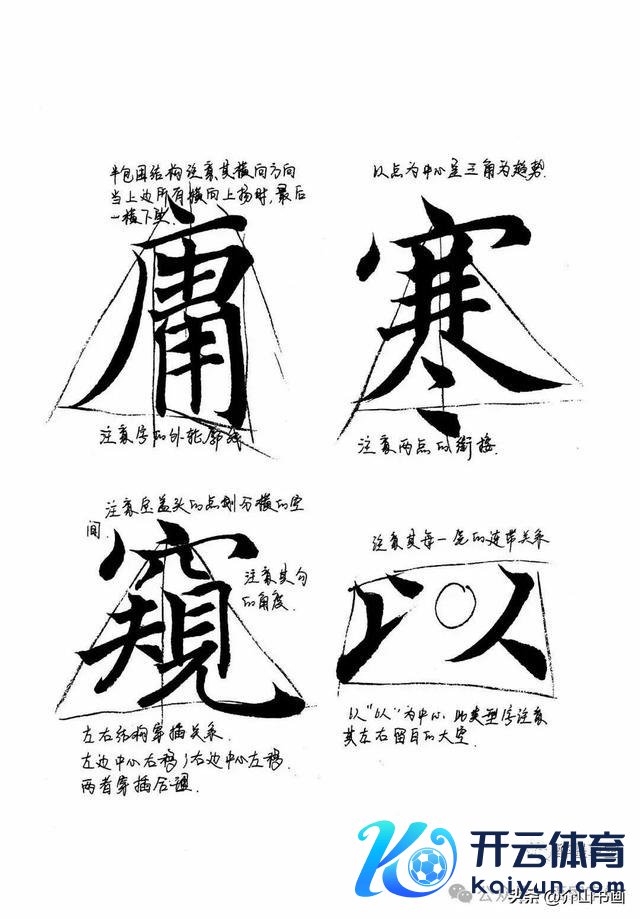 半包围结构注意其横向方向
当上边所有横向上扬时,最后
一横下
庸
注意字的外轮廓线
以点为中心呈三角为趋势.
寒
注意两点的衔接.
注意宝盖头的点划分横的空
间.
注意其勾
的角度.
窥
左右结构穿插关系.
左边中心右移,右边中心左移.
两者穿插合理.
注意其每一笔的连带关系
以
以“以”为中心.此类型字注意
其左右留白的大空.
开云体育
kaiyun.com
公众
头条 @介山书画